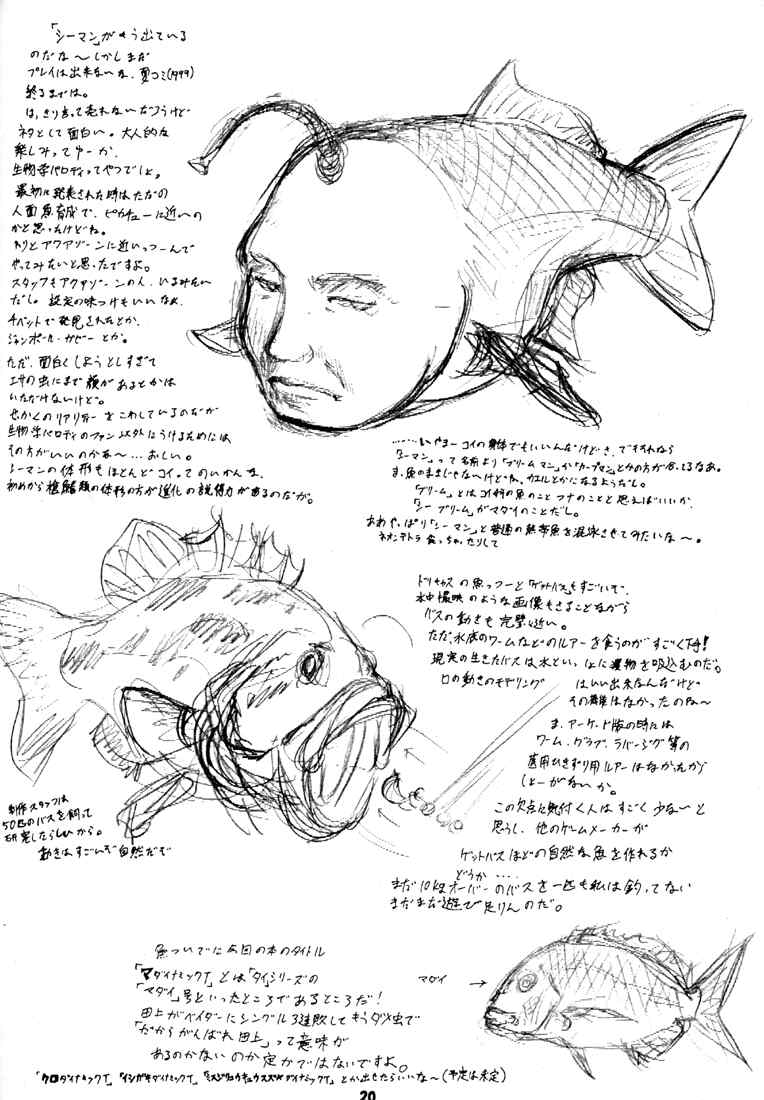 「シーマン」がもう出ている
のだな〜しかしまだ
プレイは出来ないな、夏コミ(1999)
終るまでは。
はっきり言って売れないだろうけど
ネタとして面白い。大人的な
楽しみってゆーか、
生物学パロディってやつでしょ。
最初に発表された時はただの
人面魚育成で、ピカチューに近いの
かと思ったけどね。
わりとアクアゾーンに近いっつーんで
やってみたいと思ったですよ。
スタッフもアクアゾーンの人、いるみたい
だし。設定の味つけもいいなぁ、
イベントで発見されたとか、
ジャンポール・ガゼーとか。
ただ、面白くしようとしすぎて
エサの虫にまで顔があるとかは
いただけないけど。
せっかくのリアリティーをこわしているのだが
生物学パロディのファン以外にうけるためには
その方がいいのかな〜…おしい。
シーマンの体形もほとんどコイってのいかんな、
初めから種鰭類の体形の方が進化の説得力があるのだが。
……いやまーコイの身体でもいいんだけどさ、ですればなら
「シーマン」って名前より「ブリームマン」か「カープマン」とかの方が合ってるなあ。
ま、魚のままじゃないけどね、カエルとかになるようだし。
「ブリーム」とはコイ科の魚のこと フナのことと思えばいいか、
「シーブリーム」がマダイのことだし。
あぁやっぱり「シーマン」と普通の熱帯魚を混泳させてみたいな〜。
ネオンテトラ食っちゃったりして
ドリキャスの魚っつーと「ゲットバス」もすごいで、
水中撮映のような画像もさることながら
バスの動きも完璧に近い。
ただ、水底のワームなどのルアーを食うのがすごく下手!
現実の生きたバスは水といっしょに獲物を吸込むのだ。
口の動きのモデリング
はいい出来なんだけど
その難はなかったのね〜
ま、アーケード版の時には
ワーム・グラブ、ラバージグ等の
底用ひきずり用ルアーはなかったから
しょーがないか。
この欠点に気付く人はすごく少ないと
思うし、他のゲームメーカーが
ゲットバスほどの自然な魚を作れるか
どうか……
まだ10kgオーバーのバスを一匹も私は釣ってない
まだまだ遊び足りんのだ。
制作スタッフは
50匹のバスを飼って
研究したらしいから。
動きはすごいぞ自然だぞ
魚ついでに今回の本のタイトル
「マダイナミックT」とは「タイ」シリーズの
「マダイ」号といったところであるところだ!
田上がベイダーにシングル3連敗してもうダメ虫で
「だからがんばれ田上」って意味が
あるのかないのか定かではないですよ。
マダイ →
「クロダイナミックT」「イシガキダイナミックT」 とか出せたらいいな〜(予定は未定)
20